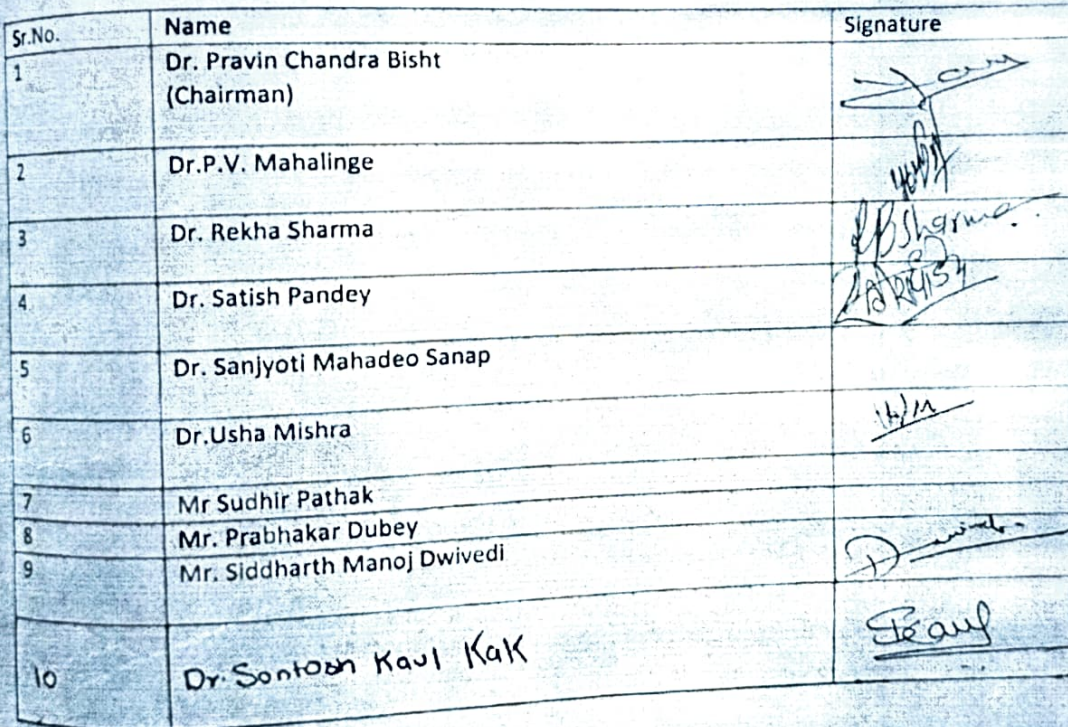 Sr.No. Name Signature
1 Dr. Pravin Chandra Bisht
(Chairman)
2 Dr.P.V. Mahalinge
3 Dr. Rekha Sharma RBSharma
4 Dr. Satish Pandey
5 Dr. Sanjyoti Mahadeo Sanap
6 Dr.Usha Mishra
7 Mr Sudhir Pathak
8 Mr. Prabhakar Dubey
9 Mr. Siddharth Manoj Dwivedi
10 Dr. Santosh Kaul Kak